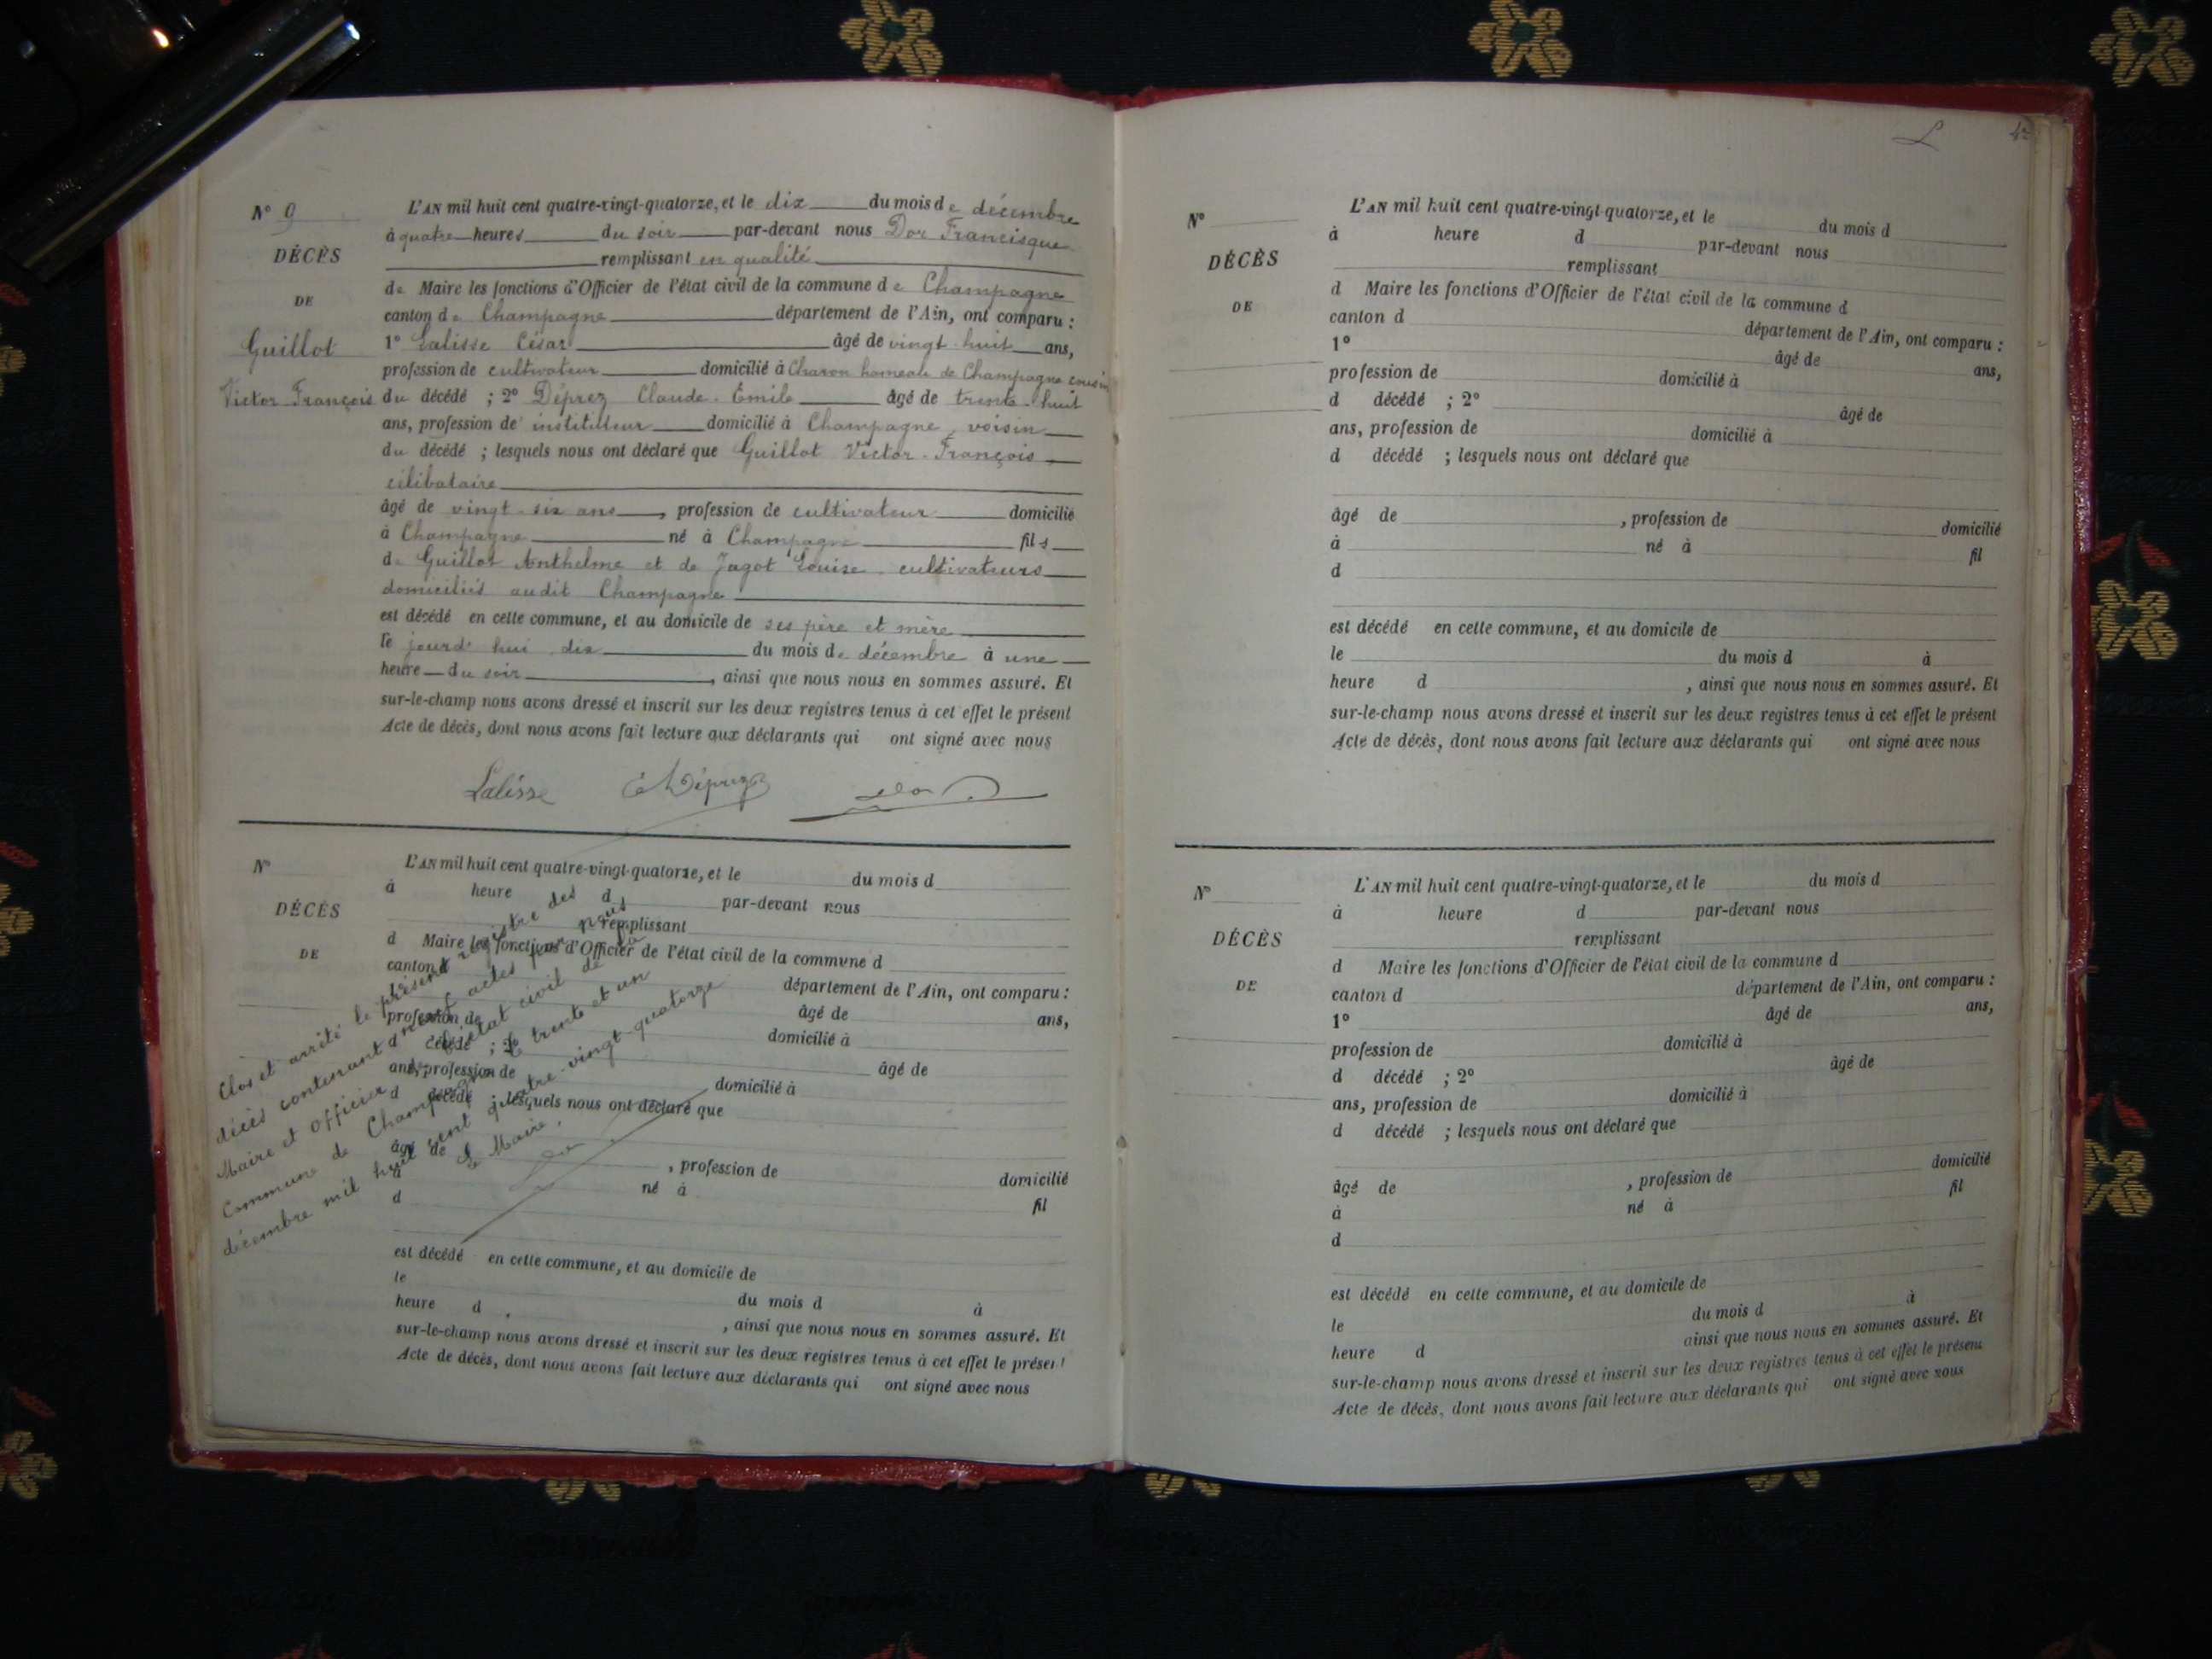 N° 9
DÉCÈS
DE
Guillot
Victor François
L'AN mil huit cent quatre-vingt-quatorze, et le dix du mois de décembre
à quatre heures du soir par-devant nous Dor Francisque
remplissant en qualité
de Maire les fonctions d'Officier de l'état civil de la commune de Champagne
canton de Champagne département de l'Ain, ont comparu :
1° Lalisse César âgé de vingt-huit ans,
profession de cultivateur domicilié à Charon hameau de Champagne cousin
du décédé ; 2° Déprez Claude-Emile âgé de trente-huit
ans, profession de instituteur domicilié à Champagne, voisin
du décédé ; lesquels nous ont déclaré que Guillot Victor-François
célibataire
âgé de vingt-six ans, profession de cultivateur domicilié
à Champagne né à Champagne fils
de Guillot Anthelme et de Jagot Louise cultivateurs
domiciliés audit Champagne
est décédé en cette commune, et au domicile de ses père et mère
le jourd'hui dix du mois de décembre à une
heure du soir, ainsi que nous nous en sommes assuré. Et
sur-le-champ nous avons dressé et inscrit sur les deux registres tenus à cet effet le présent
Acte de décès, dont nous avons fait lecture aux déclarants qui ont signé avec nous
Lalisse Déprez Dor
N°
DÉCÈS
DE
L'AN mil huit cent quatre-vingt-quatorze, et le du mois d
à heure d par-devant nous
remplissant
d Maire les fonctions d'Officier de l'état civil de la commune d
canton d
département de l'Ain, ont comparu :
profession de âgé de ans,
décédé ; 2° domicilié à
ans, profession de âgé de
d décédé ; lesquels nous ont déclaré que domicilié à
âgé de , profession de domicilié
à né à fil
d
est décédé en cette commune, et au domicile de
le du mois d à
heure d , ainsi que nous nous en sommes assuré. Et
sur-le-champ nous avons dressé et inscrit sur les deux registres tenus à cet effet le présent
Acte de décès, dont nous avons fait lecture aux déclarants qui ont signé avec nous
Clos et arrêté le présent registre des
décès contenant neuf actes par nous
Maire et Officier de l'état civil de la
Commune de Champagne le trente et un
décembre mil huit cent quatre-vingt-quatorze
Le Maire,
42
N°
DÉCÈS
DE
L'AN mil huit cent quatre-vingt-quatorze, et le du mois d
à heure d par-devant nous
remplissant
d Maire les fonctions d'Officier de l'état civil de la commune d
canton d département de l'Ain, ont comparu :
1° âgé de ans,
profession de domicilié à
d décédé ; 2° âgé de
ans, profession de domicilié à
d décédé ; lesquels nous ont déclaré que
âgé de , profession de domicilié
à né à fil
d
est décédé en cette commune, et au domicile de
le du mois d à
heure d , ainsi que nous nous en sommes assuré. Et
sur-le-champ nous avons dressé et inscrit sur les deux registres tenus à cet effet le présent
Acte de décès, dont nous avons fait lecture aux déclarants qui ont signé avec nous
N°
DÉCÈS
DE
L'AN mil huit cent quatre-vingt-quatorze, et le du mois d
à heure d par-devant nous
remplissant
d Maire les fonctions d'Officier de l'état civil de la commune d
canton d département de l'Ain, ont comparu :
1° âgé de ans,
profession de domicilié à
d décédé ; 2° âgé de
ans, profession de domicilié à
d décédé ; lesquels nous ont déclaré que
âgé de , profession de domicilié
à né à fil
d
est décédé en cette commune, et au domicile de
le du mois d à
heure d ainsi que nous nous en sommes assuré. Et
sur-le-champ nous avons dressé et inscrit sur les deux registres tenus à cet effet le présent
Acte de décès, dont nous avons fait lecture aux déclarants qui ont signé avec nous